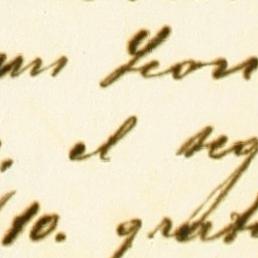 Leon
el seg
/10. grat